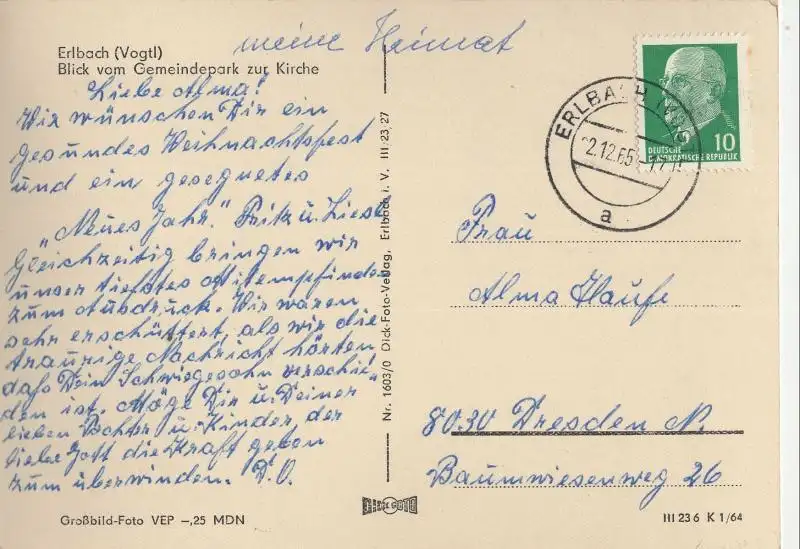 meine Heimat
Erlbach (Vogtl)
Blick vom Gemeindepark zur Kirche
Liebe Alma!
Wir wünschen Dir ein
gesundes Weihnachtsfest
und ein gesegnetes
"Neues Jahr." Fritz u. Liesl
Gleichzeitig bringen wir
unser tiefstes Mitempfinden
zum Ausdruck. Wir waren
sehr erschüttert, als wir die
traurige Nachricht hörten
daß Dein Schwiegesohn verschie-
den ist. Möge Dir u. Deiner
lieben Tochter u. Kinder der
liebe Gott die Kraft geben
zum überwinden. D. O.
Großbild-Foto VEP -,25 MDN
Nr. 1603/0 Dick-Foto-Verlag, Erlbach i. V. III 23 27
DICK FOTO
ERLBACH
2.12.65
a
10
DEUTSCHE
DEMOKRATISCHE REPUBLIK
Frau
Alma Haufe
8030 Dresden N.
Baumwiesenweg 26
III 23 6 K 1/64